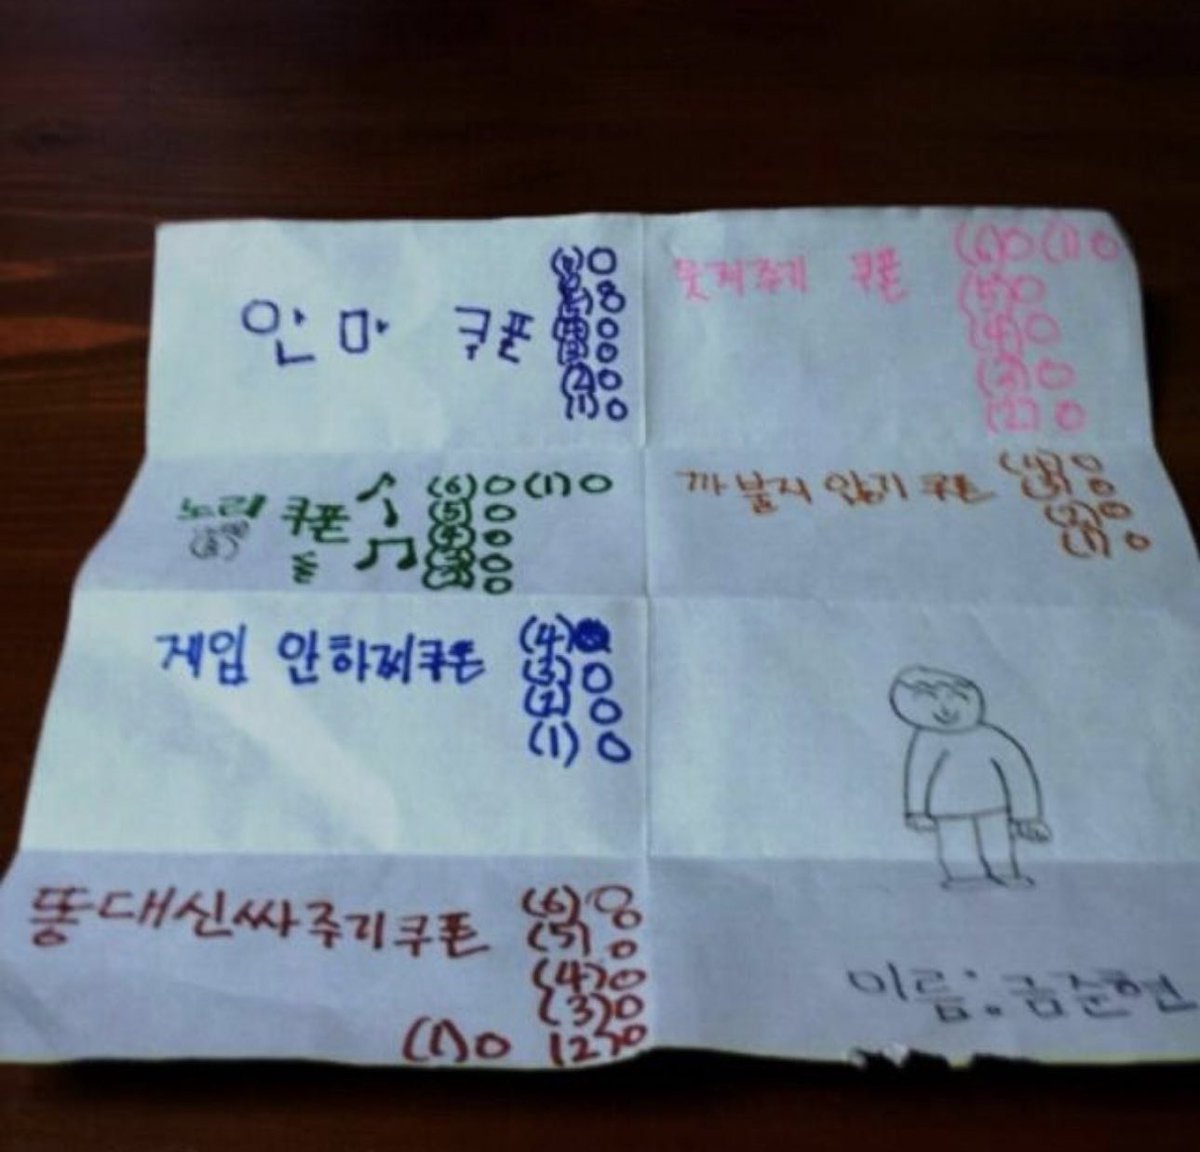 안마 쿠폰
(2)O
(1)O
웃겨주기 쿠폰
(6)O (1)O
(5)O
(4)O
(3)O
(2)O
노래 쿠폰
(6)O (1)O
(5)O
(4)O
(3)O
(2)O
까불지 않기 쿠폰
(4)O
(3)O
(2)O
(1)O
게임 안하찌쿠폰
(4)
(3)O
(2)O
(1)O
똥대신싸주기쿠폰
(6)O
(5)O
(4)O
(3)O
(1)O (2)O
이름: 금준현